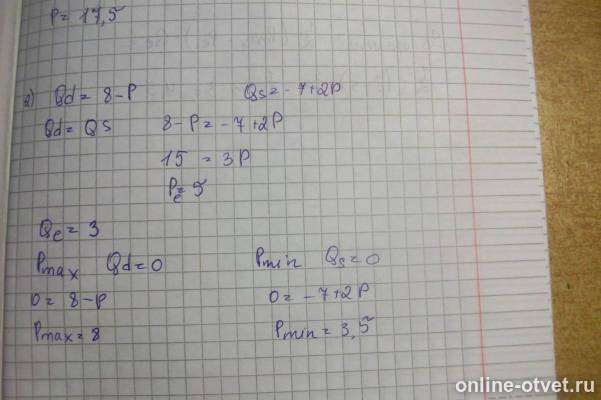 P = 17,5
2) Qd = 8 - P Qs = -7 + 2P
Qd = Qs 8 - P = -7 + 2P
15 = 3P
Pe = 5
Qe = 3
Pmax Qd = 0 Pmin Qs = 0
0 = 8 - P 0 = -7 + 2P
Pmax = 8 Pmin = 3,5
online-otvet.ru